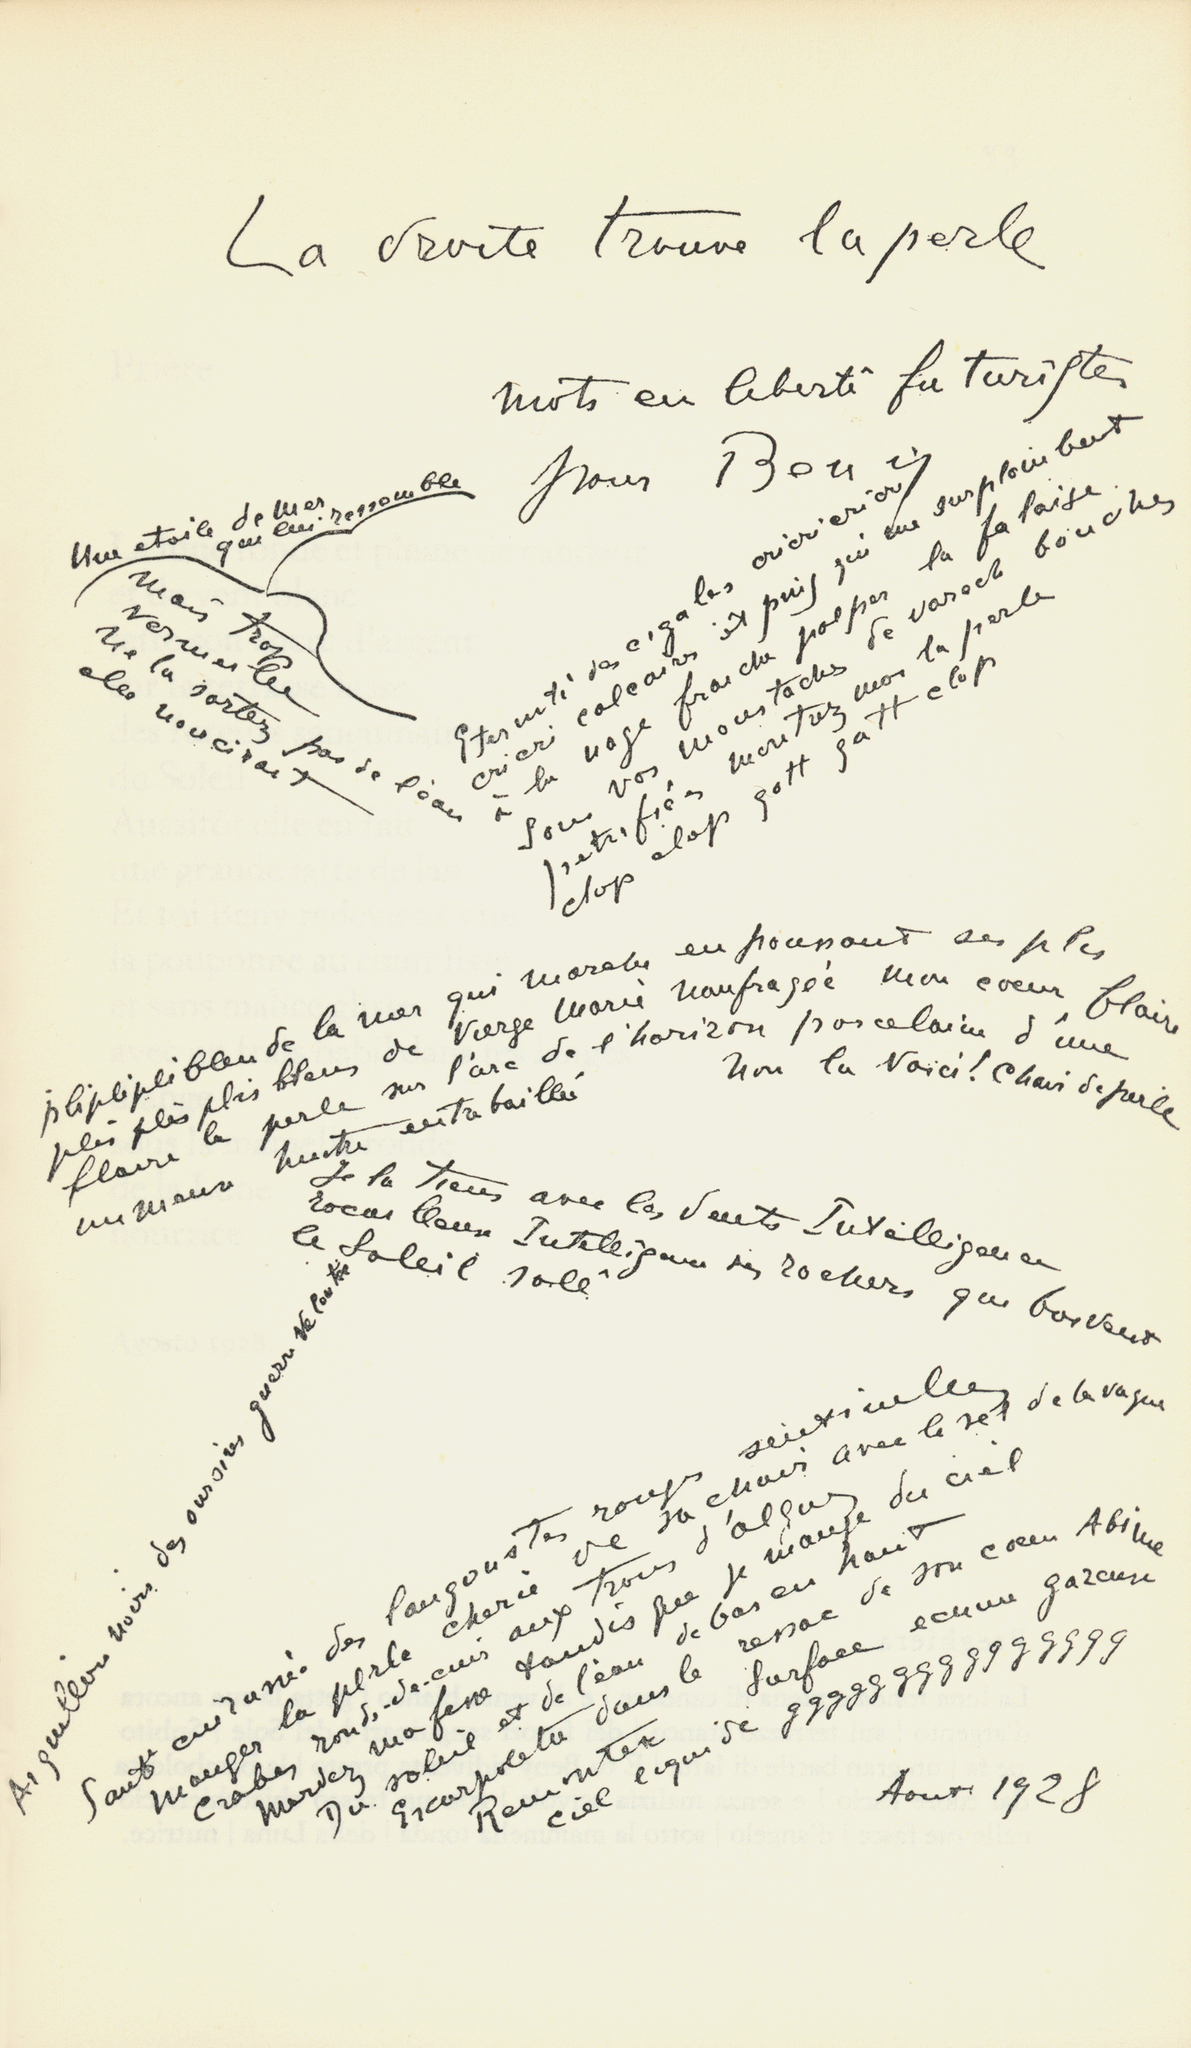 La droite trouve la perle
mots en liberté futuristes
pour Beny
Une etoile de mer
qui lui ressemble
Mais trop
vermeille
Ne la sortez pas de l'eau
elle noircirait
Eternité des cigales cricricricri
cricri calcaires et puis qui me surplombent
à la nage franche palper la falaise
Sous vos moustaches de varech bouches
petrifiées montrez moi la perle
clop clop gatt gatt clop
plipliplibleu de la mer qui marche en poussant ses plis
plis plis plis bleus de Vierge Marie naufragée mon coeur flaire
flaire la perle sur l'arc de l'horizon porcelaine d'une
immense huitre entrebaillée
Non la voici! Chair de perle
Je la tiens avec les dents Intelligence
rocailleuse Intelligence des rochers qui boivent
le Soleil salé
Aiguillons noirs des oursins guerre veloutée
Santé cuirassée des langoustes rouges
manger la perle cherie de sa chair avec le sel de la vague
Crabes ronds-de-cuir aux trous d'algues
Mordez ma fesse tandis que je mange du ciel
Du soleil et de l'eau de bas en haut
Escarpolette dans le ressac de son coeur Abime
Remonter Surface ecume gazeuse
ciel liquide ggggggggggggggg
Aout 1928